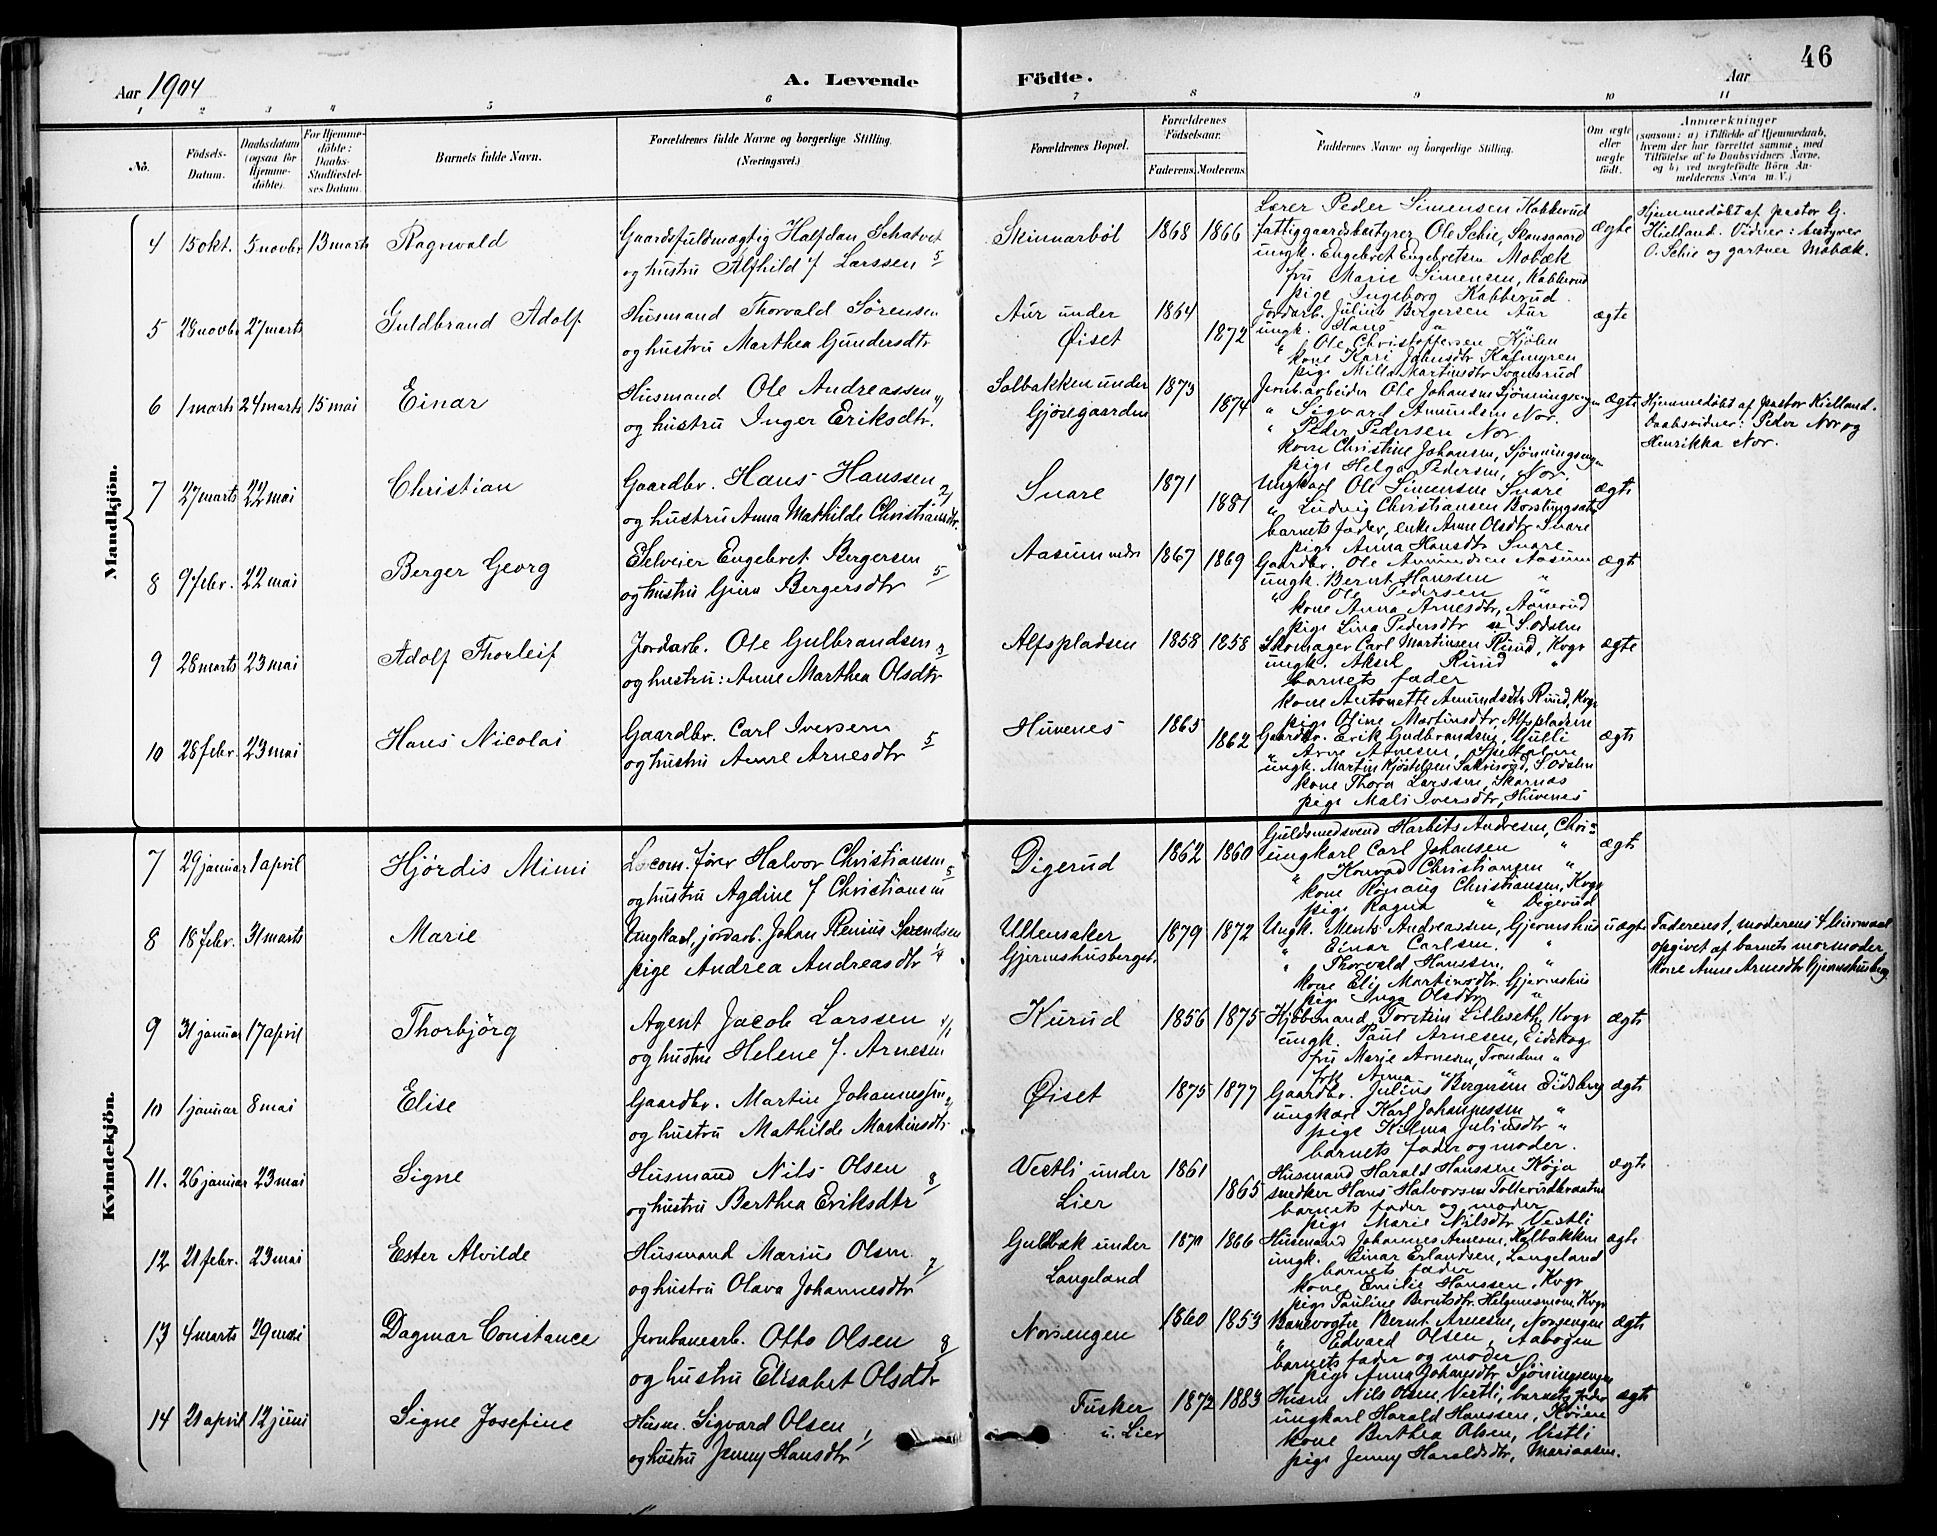 46
Aar 1904
A. Levende
Födte.
Aar
1 2 3 4 5 6 7 8 9 10 11
No.
Födsels-Datum.
Daabsdatum (ogsaa for Hjemmedöbte).
For Hjemmedöbte: Daabs-Stadfæstelses Datum.
Barnets fulde Navn.
Forældrenes fulde Navne og borgerlige Stilling. (Næringsvei.)
Forældrenes Bopæl.
Forældrenes Födselsaar.
Faderens. Moderens.
Faddernes Navne og borgerlige Stilling.
Om ægte eller uægte födt.
Anmærkninger
(saasom: a) i Tilfælde af Hjemmedaab, hvem der har forrettet samme, med Tilföielse af to Daabsvidners Navne, og b) ved uægtefödte Börn Anmelderens Navn m. V.)
Mandkjön.
4 15 okt. 5 novbr 13 marts Ragnvald
Gaardsfuldmægtig Halfdan
og hustru Alfhild f. Larssen 5
Skinnarböl 1868 1866
Lærer Peder Simensen Kabberud
fattiggaardsbestyrer Ole Schie, Skansgaard
ungk. Engebret Engebretsen Mobæk
fru Marie Simensen, Kabberud
pige Ingeborg Kabberud
ægte
Hjemmedöbt af pastor G.
Kielland. Vidner: bestyrer
O. Schie og gartner Mobæk.
5 28 novbr 27 marts Guldbrand Adolf
Husmand Thorvald Sörensen
og hustru Marthea Gundersdtr
Aur under
Öiset 1864 1872
Jordarb. Julius Bergersen Aur
ungk. Hans " "
" Ole Christoffersen Kjölen
kone Kari Johnsdtr Kalmyren
pige Milla Martinsdtr
ægte
6 1 marts 24 marts 15 mai Einar
Husmand Ole Andreassen
og hustru Inger Eriksdtr.
Solbakken under
Gjösegaarden 1873 1874
Jernb.arbeider Ole Johansen Sjönningsengen
" Sigvard Amundsen Nor.
" Peder Pedersen Nor
kone Christine Johansen, Sjönningsengen
pige Helga Pedersen, Nor.
ægte
Hjemmedöbt af pastor Kielland.
Daabsvidner: Peder Nor og
Henrikka Nor.
7 27 marts 22 mai Christian
Gaardbr. Hans Hanssen
og hustru Anna Mathilde Christiansdtr. 2
Snare 1871 1881
Ungkarl Ole Simensen Snare
" Ludvig Christiansen
barnets fader, enke Anne Olsdtr Snare
pige Anna Hansdtr Snare
ægte
8 9 febr. 22 mai Berger Georg
Selveier Engebret Bergersen
og hustru Gina Bergersdtr 5
Aasum nedre 1867 1869
Gaardbr. Ole Amundsen Aasum
ungk. Bernt Hanssen "
" Ole Pedersen "
kone Anna Arnesdtr,
pige Lina Pedersdtr S. Odalen
ægte
9 28 marts 23 mai Adolf Thorleif
Jordarb. Ole Gulbrandsen
og hustru: Anne Marthea Olsdtr
Alfspladsen 1858 1858
Skomager Carl Martinsen Ruud, Kvgr
ungk. Aksel Ruud "
barnets fader
kone Antonette Amundsdtr Ruud, Kvgr
pige Oline Martinsdtr, Alfspladsen
ægte
10 28 febr. 23 mai Hans Nicolai
Gaardbr. Carl Iversen
og hustru Anne Arnesdtr 5
Huvenes 1865 1862
Gaardbr. Erik Gudbrandsen, Gulli
" Arne Arnesen,
ungk. Martin Kjöstelsen S. Odalen
kone Thora Larssen, Skarnæs
pige Mali Iversdtr, Huvenes
ægte
Kvindekjön.
7 29 januar 1 april Hjördis Mimi
Locom. förer Halvor Christiansen
og hustru Agdine f. Christiansen 5
Digerud 1862 1860
Guldsmedsvend Harbits Andresen, Chri.a
ungkarl Carl Johansen "
" Konrad Christiansen "
kone Rönaug Christiansen, Kvgr
pige Ragna " Digerud
ægte
8 18 febr. 31 marts Marie
Ungkarl, jordarb. Johan Renius Sörensen
pige Andrea Andreasdtr 1/4
Ullensaker
Gjermshusberget. 1879 1872
Ungk. Ments Andreassen, Gjermshus
" Einar Carlsen, "
" Thorvald Hanssen, "
kone Elij Martinsdtr. Gjermshus
pige Inga Olsdtr "
uægte
Faderens 1, moderens 4 leiermaal
opgivet af barnets mormoder,
kone Anne Arnesdtr Gjermshusberg
9 31 januar 17 april Thorbjörg
Agent Jacob Larssen 1/1
og hustru Helene f. Arnesen
Kurud 1856 1875
Kjöbmand Torstein Lilleseth, Kvgr
ungk. Paul Arnesen, Eidskog
fru Marie Arnesen, Tronden "
frk Anna " "
ægte
10 1 januar 8 mai Elise
Gaardbr. Martin Johannessen
og hustru Mathilde Martinsdtr.
Öiset 1875 1877
Gaardbr. Julius Bergersen Eidsberg
ungkarl Karl Johannessen "
pige Hilma Juliusdtr "
barnets fader og moder.
ægte
11. 26 januar 23 mai Signe
Husmand Nils Olsen
og hustru Berthea Eriksdtr 8
Vestli under
Lier 1861 1865
Husmand Harald Hanssen Köja
snedker Hans Halvorsen
barnets fader og moder
pige Marie Nilsdtr Vestli
ægte
12 21 febr. 23 mai Ester Alvilde
Husmand Marius Olsen
og hustru Olava Johannesdtr 7
Guldbæk under
Langeland 1870 1866
Husmand Johannes Arnesen, Kolbækken
ungk. Einar Erlandsen, Langeland
barnets fader
kone Emilie Hanssen, Kvgr
pige Pauline Berntsdtr. Helgenesmoen, Kvgr
ægte
13 4 marts 29 mai Dagmar Constance
Jernbanearb. Otto Olsen 8
og hustru Elisabet Olsdtr
Norsengen 1860 1853
Banevogter Bernt Arnesen, Norsengen
" Edvard Olsen, Aabogen
barnets fader og moder
pige Anna Johansdtr Sjönningsengen
ægte
14 21 april 12 juni Signe Josefine
Husm. Sigvard Olsen 1
og hustru Jenny Hansdtr
Fusker
u. Lier 1872 1883
Husm Nils Olsen, Vestli, barnets fader
ungkarl Harald Hanssen,
kone Berthea Olsen, Vestli
pige Jenny Haraldsdtr, Mariaasen.
ægte